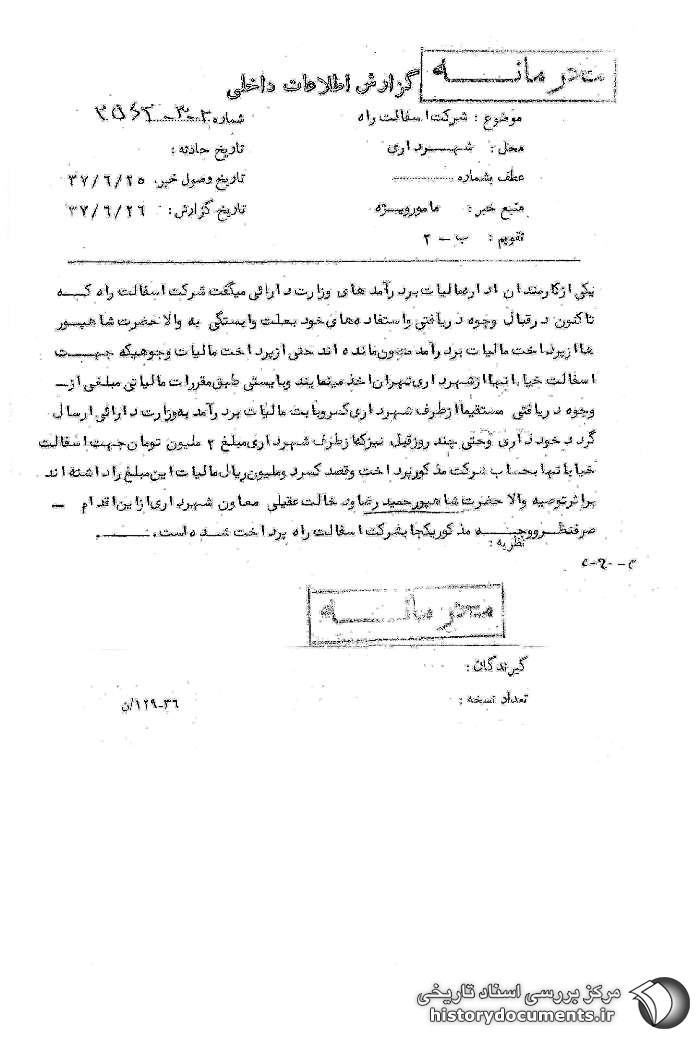 محرمانـــه
گزارش اطلاعات داخلی
موضوع : شرکت اسفالت راه
شماره
محل : شهــرداری
تاریخ حادثه :
عطف بشماره
تاریخ وصول خبر: ۳۷/۶/۲۵
منبع خبر : مامورویــژه
تاریخ گزارش : ۳۷/۶/۲۶
تقویم : ب - ۲
یکی ازکارمندان اداره‌مالیات بردرآمدهای وزارت دارائی میگفت شرکت اسفالت راه کــه
تاکنون درقبال وجوه دریافتی واستفاده‌های خود بعلت وابستگی به والاحضرت شاهپـور
ها ازپرداخت مالیات بردرآمد مصون‌مانده اند حتی ازپرداخت مالیات وجوهیکه جهـــت
اسفالت خیابانها ازشهرداری تهران اخذ مینمایند وبایستی طبق مقررات مالیاتی مبلغی از ـ
وجوه دریافتی مستقیما ازطرف شهرداری کسروبابت مالیات بردرآمد به‌وزارت دارائی ارسال
گردد خودداری وحتی چند روزقبل نیزکه ازطرف شهرداری مبلغ ۲ ملیون تومان جهت اسفالت
خیابانها بحساب شرکت مذکورپرداخت وقصد کسر دوملیون ریال مالیات این مبلغ راداشته اند
براثرتوصیه والاحضرت شاهپورحمیدرضا ودخالت عقیلی معاون شهرداری ازاین اقدام ـ
صرفنظرووجــه مذکوریکجا بشرکت اسفالت راه پرداخت شده است.
نظریه :
محرمانـــه
گیرندگان :
تعداد نسخه :
۱۲۹-۳۶/ن
مرکز بررسی اسناد تاریخی
historydocuments.ir